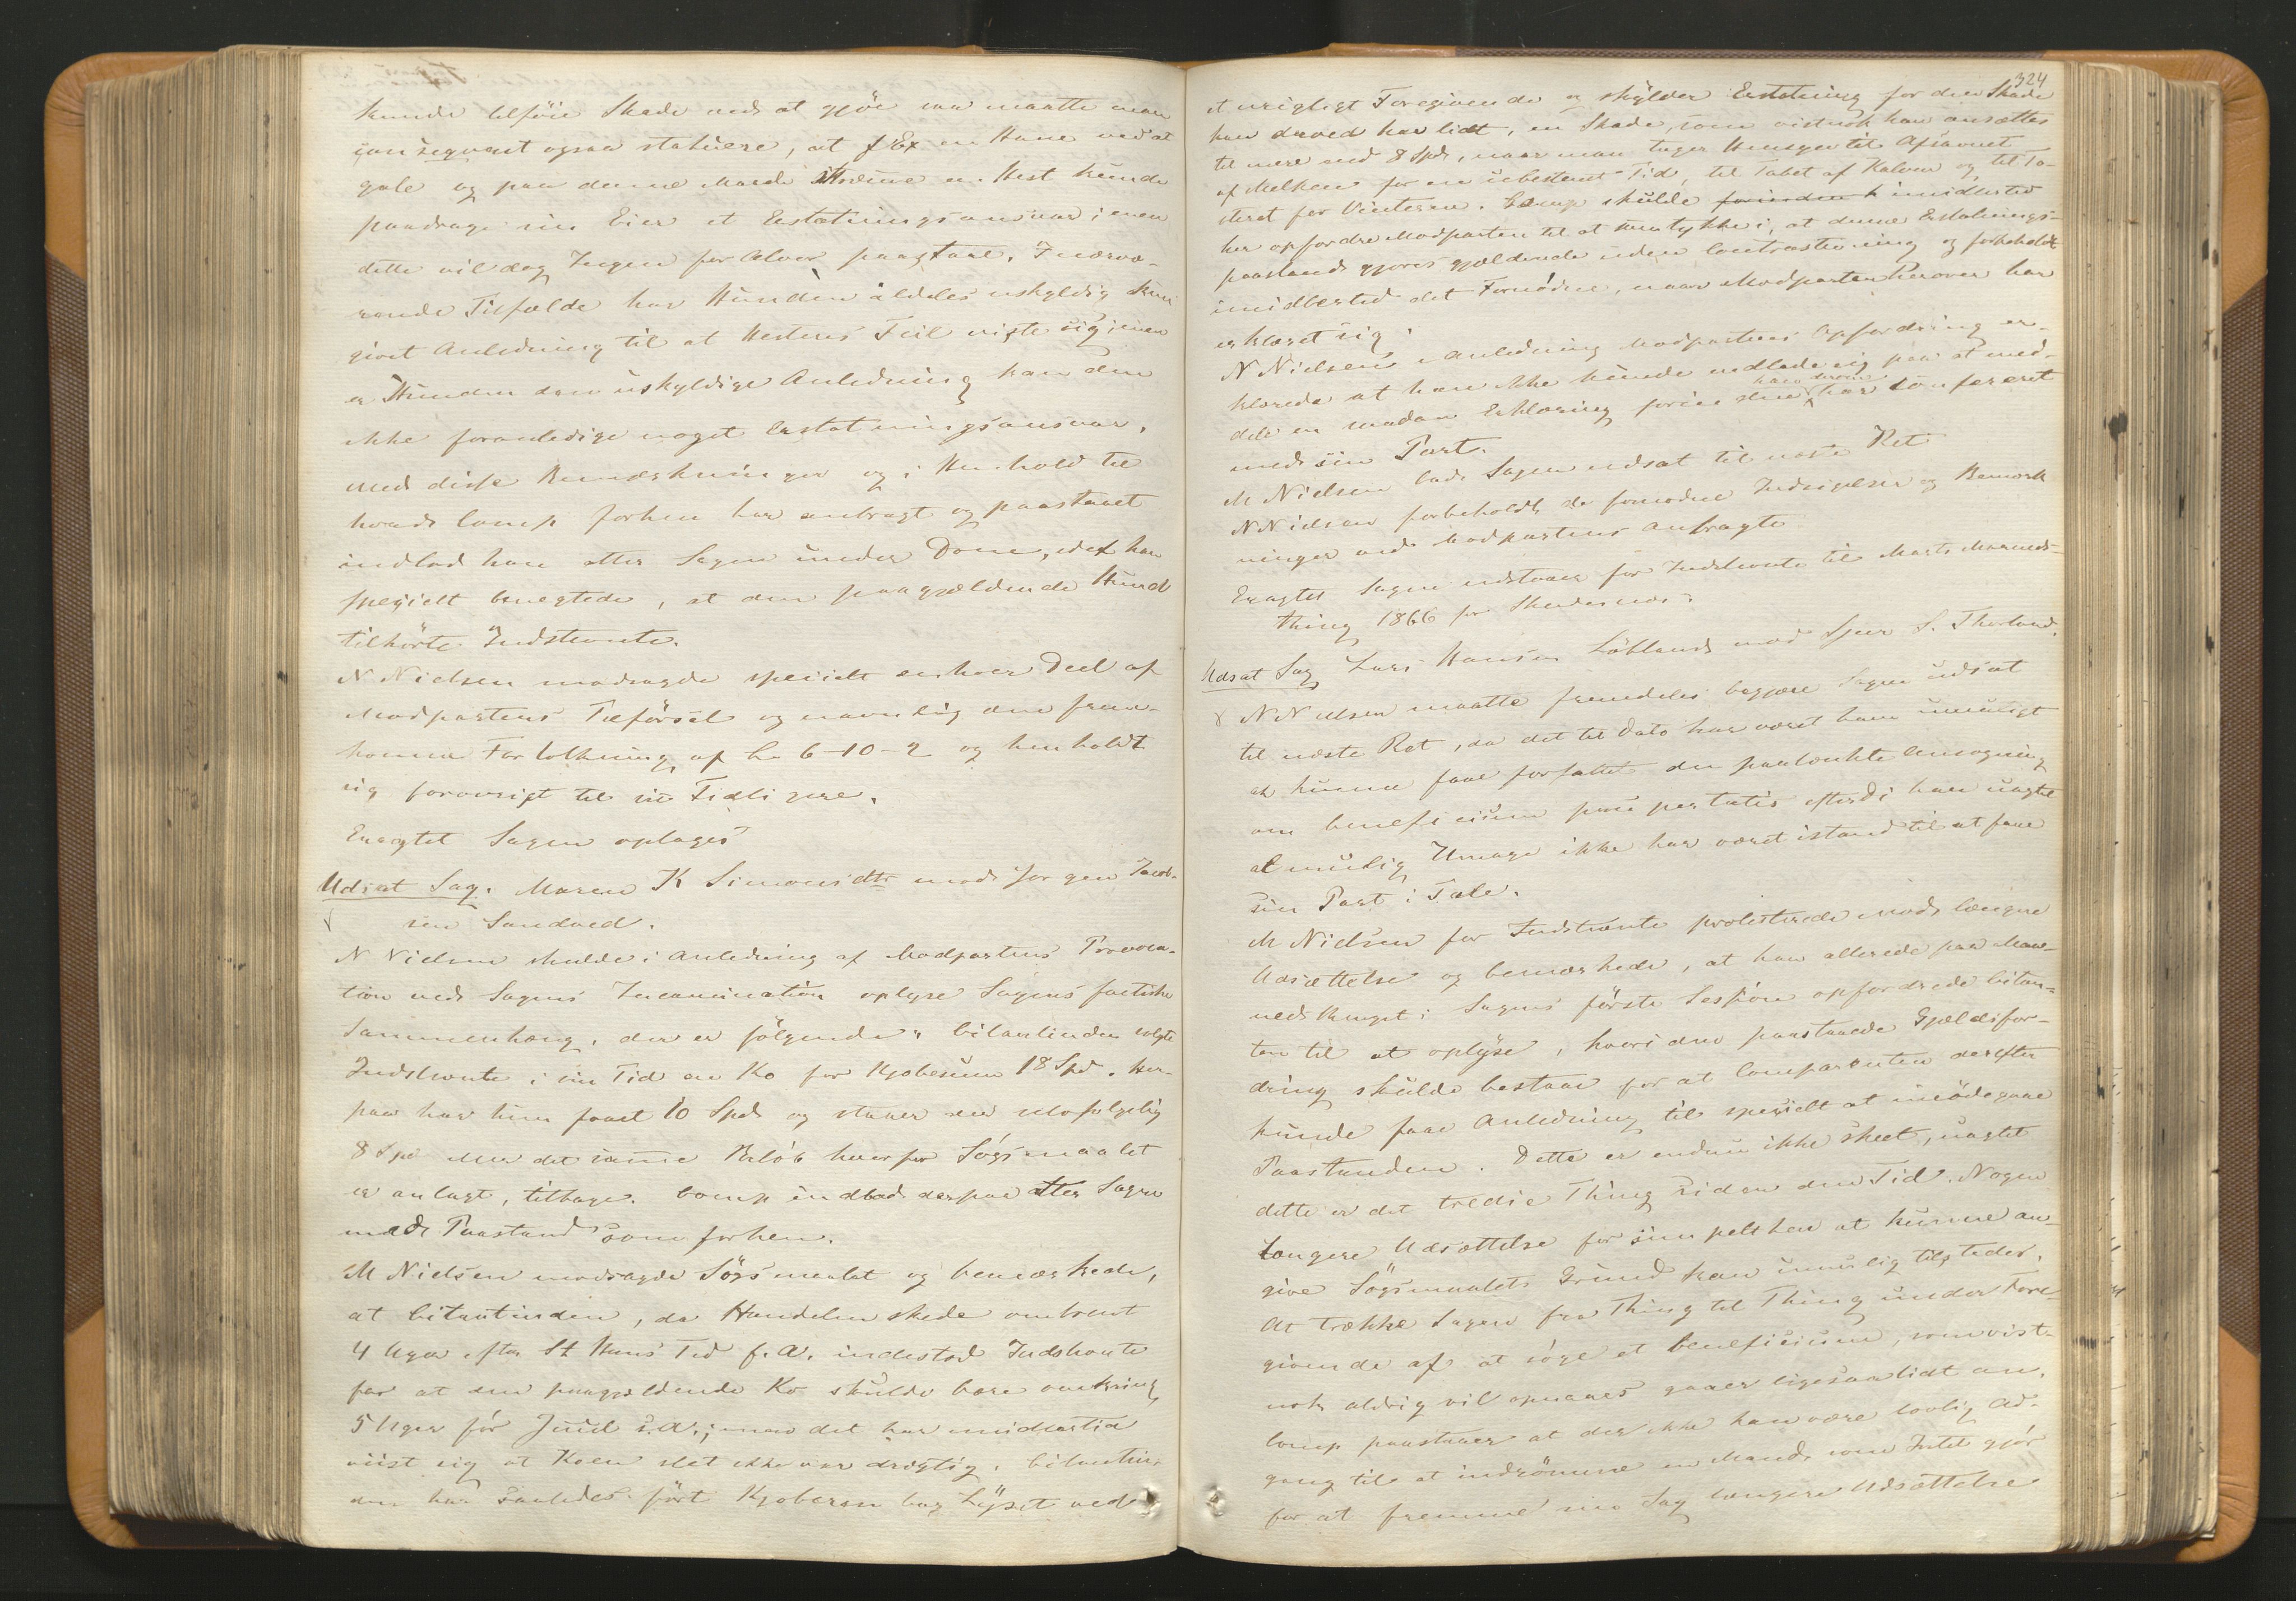 kunde tilföie Skade ved at gjöe saa maatte man
consequent ogsaa statuere, at f Ex en Hane ved at
gale og paa denne Maade skræme en Hest kunde
paadrage sin Eier et Erstatningsansvar; men
dette vil dog Ingen for Alvor paastaae. I nærvæ-
rende Tilfælde har Hunden aldeles uskyldig kun
givet Anledning til at Hestens Feil viste sig; men
er Hunden den uskyldige Anledning kan den
ikke foranledige noget Erstatningsansvar.
Med disse Bemærkninger og i Henhold til
hvad Comp forhen har anbragt og paastaaet
indlod han atter Sagen under Dom, idet han
specielt benegtede, at den paagjældende Hund
tilhörte Indstevnte.
N Nielsen modsagde specielt enhver Deel af
Modpartens Tilförsel og navnlig den frem-
komne Fortolkning af L 6-10-2 og henholdt
sig forövrigt til sit Tidligere.
Eragtet Sagen optages
Udsat Sag. Maren K Simonsdtr mod Jörgen Jacob-
sen Sandved.
N Nielsen skulde i Anledning af Modpartens Provoca-
tion ved Sagens Incamination oplyse Sagens factiske
Sammenhæng, der er fölgende: Citantinden solgte
Indstevnte i sin Tid en Ko for Kjöbesum 18 Spd. Her-
paa har hun faaet 10 Spd og staaer der altsaa
8 Spd eller det samme Belöb hvorfor Sögsmaalet
er anlagt, tilbage. Comp indlod derpaa atter Sagen
med Paastand som forhen.
M Nielsen modsagde Sögsmaalet og bemærkede,
at Citantinden, da Handelen skede omtrent
4 Uger efter St Hans Tid f. A. indestod Indstevnte
for at den paagjældende Ko skulde bære omkring
5 Uger för Juul s. A.; men det har imidlertid
viist sig at Koen slet ikke var drægtig. Citantin-
den har saaledes fört Kjöberen bag Lyset ved
324
et urigtigt Foregivende og skylder Erstatning for den Skade
han derved har lidt, en Skade, som vistnok kan ansættes
til mere end 8 Spd, naar man tager Hensyn til Afsavnet
af Melken for en ubestemt Tid, til Tabet af Kalven og til Fo-
steret for Vinteren. Comp skulde imidlertid
her opfordre Modparten til at samtykke i, at denne Erstatnings-
paastand gjöres gjældende uden Contrastevning og forbeholdt
imidlertid det Fornödne, naar Modparten herover har
erklæret sig.
N Nielsen i Anledning Modpartens Opfordring er-
klærede at han ikke kunde indlade sig paa at med-
dele en saadan Erklæring förinden han derom har confereret
med sin Part.
M Nielsen bad Sagen udsat til næste Ret
N Nielsen forbeholdt de fornödne Indsigelser og Bemærk
ninger ved Modpartens Anbragte
Eragtet Sagen udstaaer for Indstevnte til Marts Maaneds-
thing 1866 for Skudesnæs.
Udsat Sag Lars Hansen Lökland mod Sjur S. Thorland.
N Nielsen maatte fremdeles begjære Sagen udsat
til næste Ret, da det til Dato har været ham umuligt
at kunne faae forfattet den paatænkte Ansögning
om beneficium paupertatis efterdi han uagtet
al mulig Umage ikke har været istand til at faae
sin Part i Tale.
M Nielsen for Indstevnte protesterede mod længere
Udsættelse og bemærkede, at han allerede paa Maa-
nedsthinget i Sagens förste Session opfordrede Citan-
ten til at oplyse, hvori den paastaaede Gjældsfor-
dring skulde bestaae for at Comparenten derefter
kunde faae Anledning til specielt at imödegaae
Paastanden. Dette er endnu ikke skeet, uagtet
dette er det tredie Thing siden den Tid. Nogen
længere Udsættelse for simpelthen at kunne an-
give Sögsmaalets Grund kan umulig tilstedes.
At trække Sagen fra Thing til Thing under Fore-
givende af at söge et beneficium, som vist-
nok aldrig vil opnaaes gaaer ligesaalidt an.
Comp paastaaer at der ikke kan være lovlig Ad-
gang til at indrömme en Mand som Intet gjör
for at fremme sin Sag længere Udsættelse